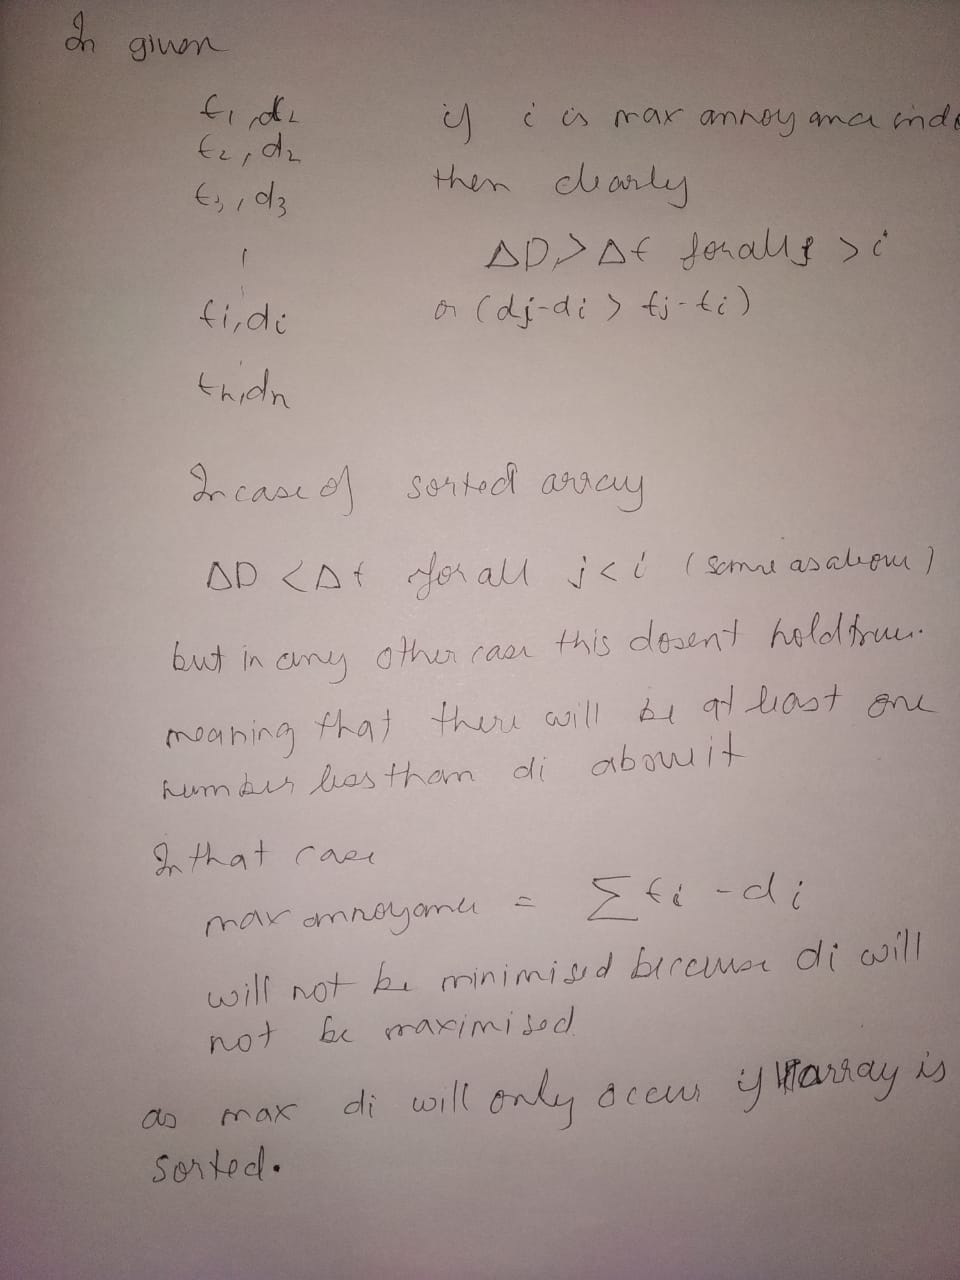 In given
t1, d1
t2, d2
t3, d3
ti, di
tn, dn
if i is max annoyance
then clearly
ΔD > Δt for all j > i
or (dj-di > tj-ti)
In case of sorted array
ΔD < Δt for all j < i (same as above)
but in any other case this dosent hold true.
meaning that there will be at least one
number less than di above it
In that case
max annoyance = Σti - di
will not be minimised because di will
not be maximised
as max di will only occur if array is
sorted.